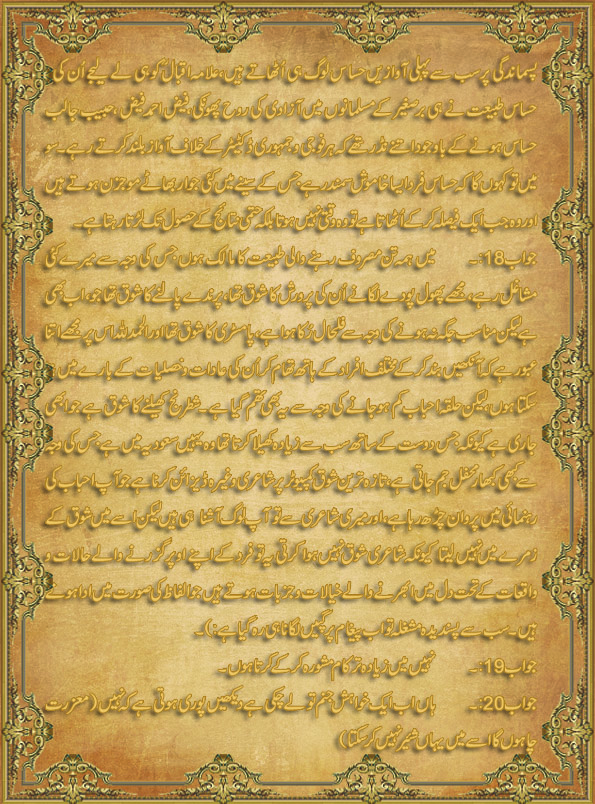 پسماندگی پر سب سے پہلی آوازیں حساس لوگ ہی اُٹھاتے ہیں،علامہ اقبال کو ہی لے لیجے اُن کی
حساس طبیعت نے ہی برصغیر کے مسلمانوں میں آزادی کی روح پھونکی،فیض احمد فیض،حبیب جالب
حساس ہونے کے باوجود اتنے نڈر تھے کہ ہر فوجی و جمہوری ڈکٹیٹر کے خلاف آواز بلند کرتے رہے۔سو
میں تو کہوں گا کہ حساس فرد ایسا خاموش سمندر ہے جس کے سینے میں کئی جوار بھاٹے موجزن ہوتے ہیں
اور وہ جب ایک فیصلہ کر کے اُٹھاتا ہے تو وہ وقتی نہیں ہوتا بلکہ حتمی نتائج کے حصول تک لڑتا رہتا ہے۔
جواب18:۔ میں ہمہ تن مصروف رہنے والی طبیعت کا مالک ہوں جس کی وجہ سے میرے کئی
مشاغل رہے،مجھے پھول پودے لگانے اُن کی پرورش کا شوق تھا،پرندے پالنے کا شوق تھا جو اب بھی
ہے لیکن مناسب جگہ نہ ہونے کی وجہ سے فلحال رُکا ہوا ہے،پامسٹری کا شوق تھا اور الحمد للہ اس پر مجھے اتنا
عبور ہے کہ آنکھیں بند کر کے مختلف افراد کے ہاتھ تھام کر اُن کی عادات و خصلیات کے بارے میں بتا
سکتا ہوں،لیکن حلقہ احباب کم ہو جانے کی وجہ سے یہ بھی تھم گیا ہے۔شطرنج کھیلنے کا شوق ہے جو ابھی
جاری ہے کیونکہ جس دوست کے ساتھ سب سے زیادہ کھیلا کرتا تھا وہ یہیں سعودیہ میں ہے جس کی وجہ
سے کبھی کبھار محفل جم جاتی ہے،تازہ ترین شوق کمپیوٹر پر شاعری وغیرہ ڈیزائن کرنا ہے جو آپ احباب کی
رہنمائی میں پروان چڑھ رہا ہے،اور میری شاعری سے تو آپ لوگ آشنا ہی ہیں لیکن اسے میں شوق کے
زمرے میں نہیں لیتا کیونکہ شاعری شوق نہیں ہوا کرتی یہ تو فرد کے اپنے اوپر گزرنے والے حالات و
واقعات کے تحت دل میں ابھرنے والے خیالات و جزبات ہوتے ہیں جو الفاظ کی صورت میں ادا ہوتے
ہیں۔سب سے پسندیدہ مشغلہ تو اب پیغام پر گپیں لگانا ہی رہ گیا ہے:)۔
جواب19:۔ نہیں میں زیادہ تر کام مشورہ کر کے کرتا ہوں۔
جواب20:۔ ہاں اب ایک خواہش جنم تو لے چکی ہے دیکھیں پوری ہوتی ہے کہ نہیں (معزرت
چاہوں گا اسے میں یہاں شیئر نہیں کر سکتا)